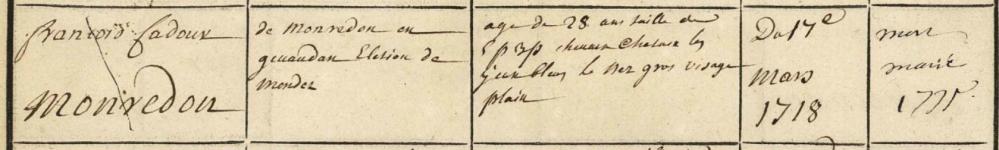 françois Cadoux
Monredon
de Monredon en
gevaudan Election de
Mendes
age de 28 ans taille de
5 p 3 p cheveux Chatain les
yeux bleus le Nez gros visage
plain
Du 17e
Mars
1718
mort
marié